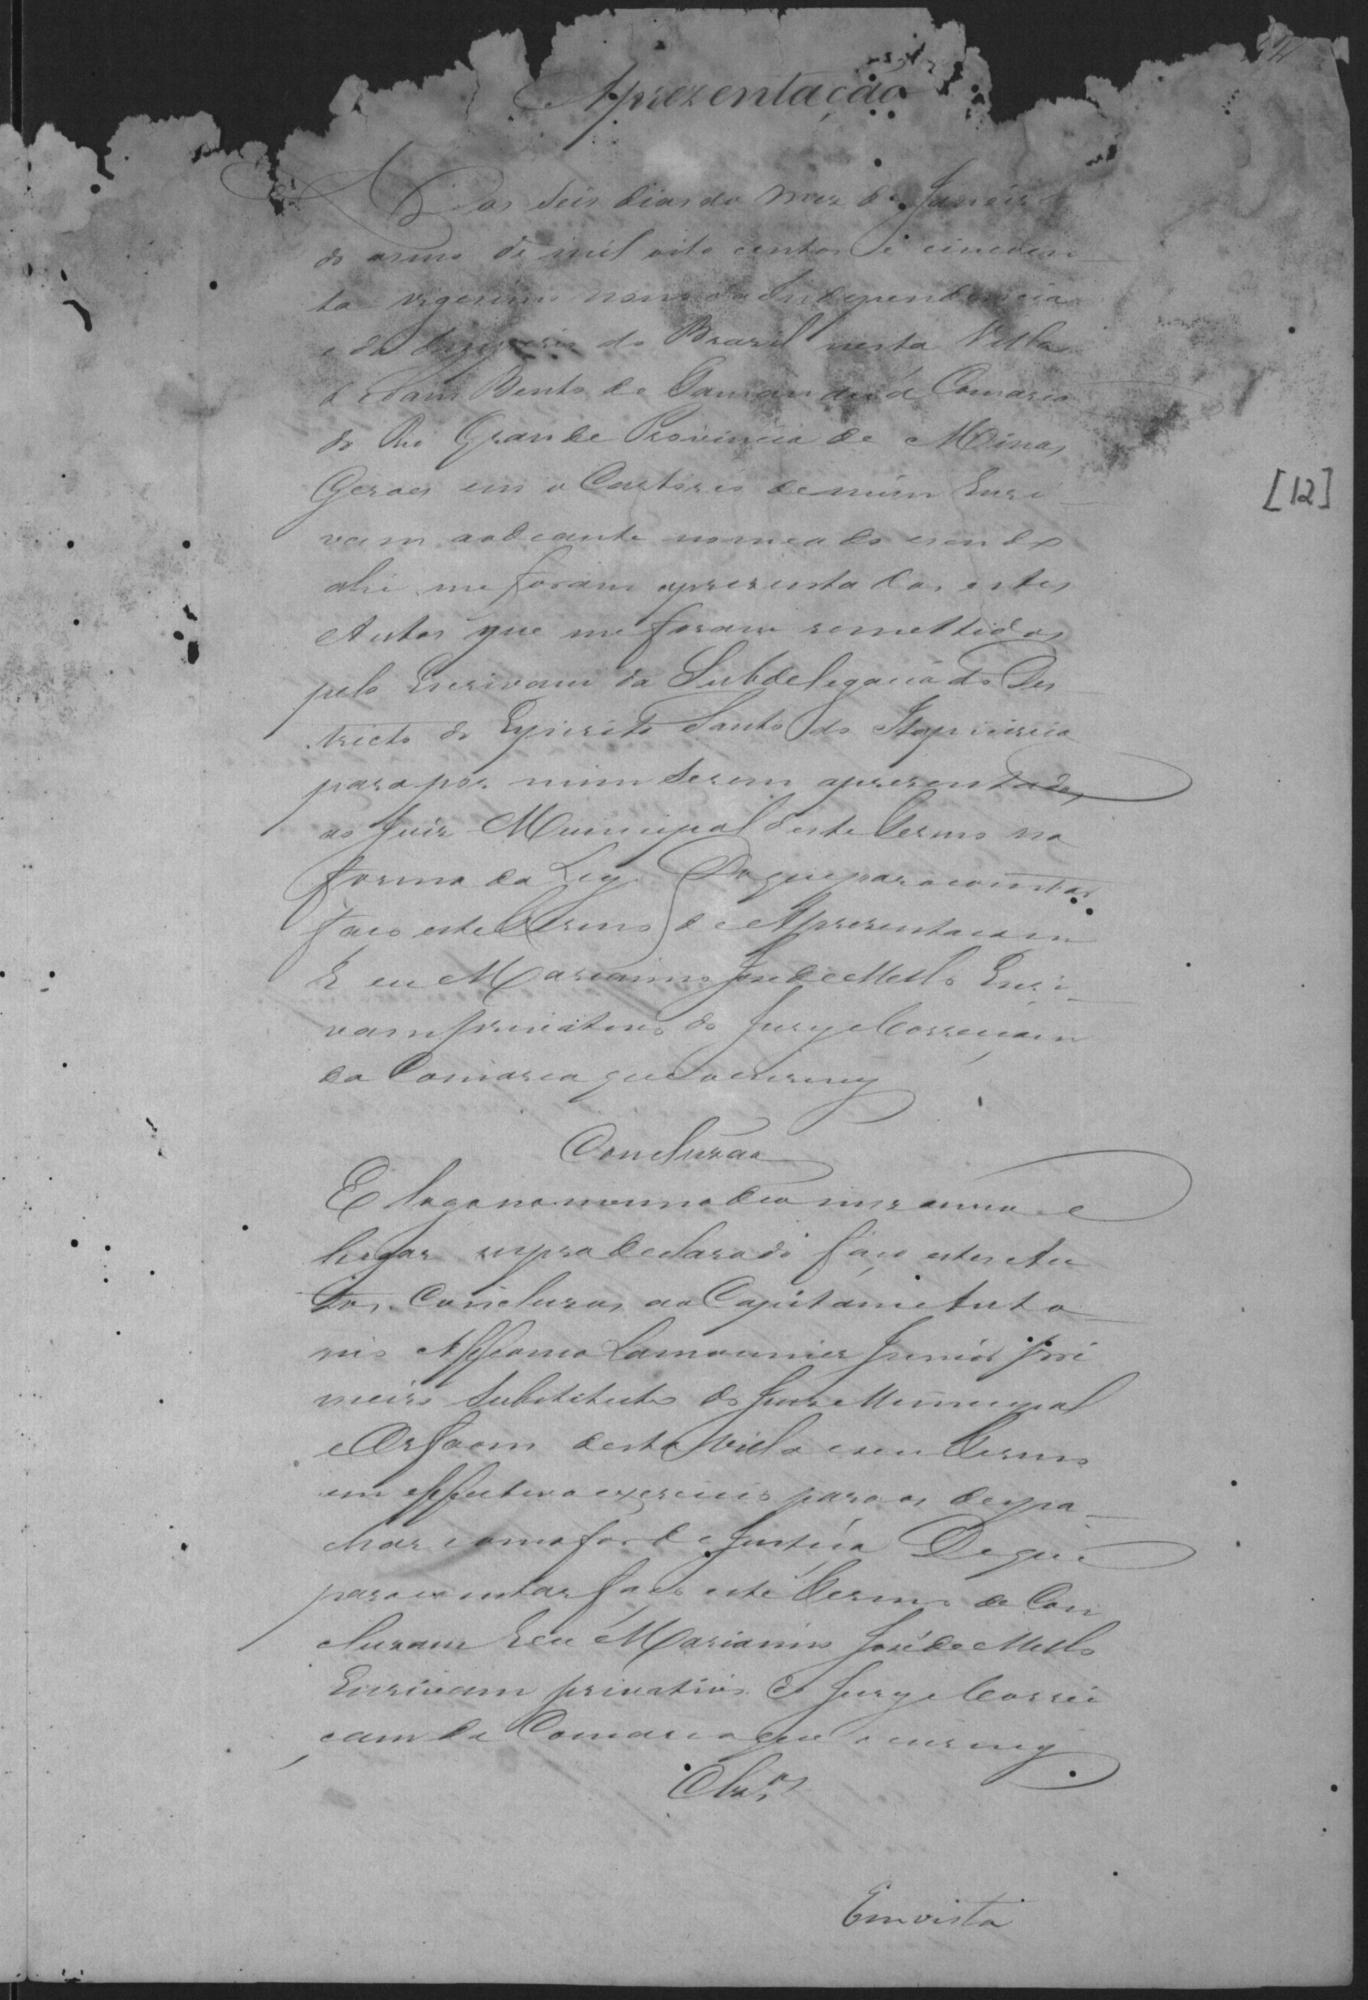 Aprezentação
Aos seis dias do mez de Janeiro
do anno de mil oito centos e cincoen
ta vigesimo nono da Independencia
e do Imperio do Brazil nesta Villa
de Sam Bento do Tamanduá Comarca
do Rio Grande Provincia de Minas
Geraes em o Cartorio de mim Escri
vam aodeante nomeado e sendo
ahi me foram aprezentados estes
Autos que me foram remettidos
pelo Escrivam da Subdelegacia do Des
tricto do Espirito Santo da Itapicirica
para por mim serem aprezentados
ao Juiz Municipal deste Termo na
forma da Ley. Do que para constar
faço este Termo de Aprezentacam
E eu Marianno José de Mello Escri
vam privativo do Jury e Correicam
da Comarca que o escrevy
[12]
Concluzão
E logo no mesmo dia mez anno e
lugar supra declarado faço estes Au
tos Concluzos ao Capitam Anto
nio Affonso Lamounier Junior Pri
meiro Substituto do Juiz Municipal
e Orfaons desta Villa e seu Termo
em effectivo exercicio para os despa
char como for de Justiça De que
para constar faço este Termo de Con
cluzam Eeu Marianno José de Mello
Escrivam privativo do Jury e Correi
çam da Comarca que o escrevy
Clos
Em vista